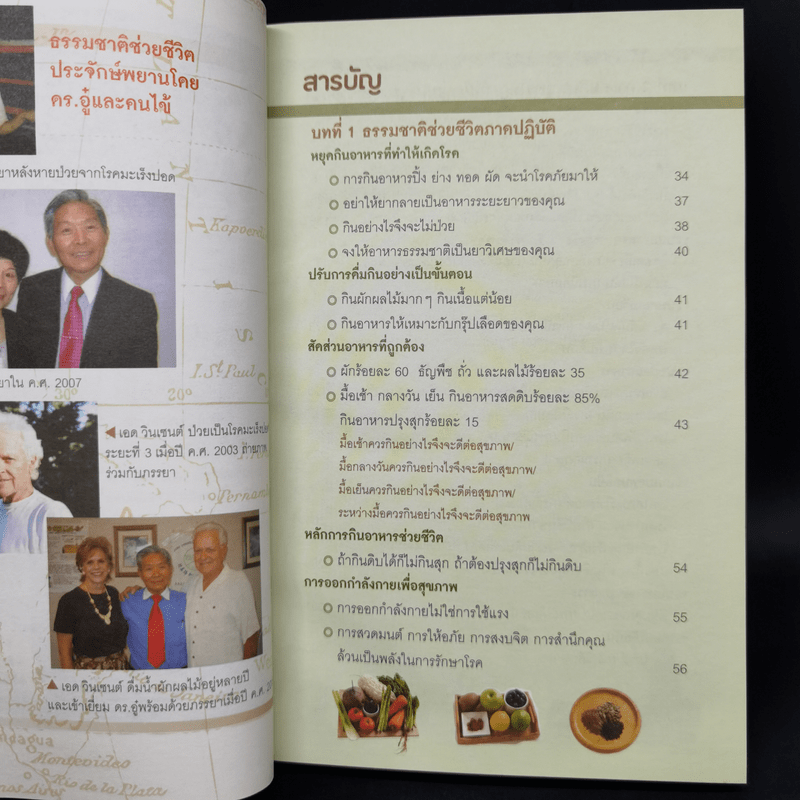 ธรรมชาติช่วยชีวิต
ประจักษ์พยานโดย
ดร.อู๋และคนไข้
ยาหลังหายป่วยจากโรคมะเร็งปอด
ยาใน ค.ศ. 2007
เอด วินเซนต์ ป่วยเป็นโรคมะเร็งปอด
ระยะที่ 3 เมื่อปี ค.ศ. 2003 ถ่ายภาพ
ร่วมกับภรรยา
เอด วินเซนต์ ดื่มน้ำผักผลไม้อยู่หลายปี
และเข้าเยี่ยม ดร.อู๋พร้อมด้วยภรรยาเมื่อปี ค.ศ. 2
I. St Paul
30°
20°
Montevideo
Rio de la Plata
สารบัญ
บทที่ 1 ธรรมชาติช่วยชีวิตภาคปฏิบัติ
หยุดกินอาหารที่ทำให้เกิดโรค
การกินอาหารปิ้ง ย่าง ทอด ผัด จะนำโรคภัยมาให้ 34
อย่าให้ยากลายเป็นอาหารระยะยาวของคุณ 37
กินอย่างไรจึงจะไม่ป่วย 38
จงให้อาหารธรรมชาติเป็นยาวิเศษของคุณ 40
ปรับการดื่มกินอย่างเป็นขั้นตอน
กินผักผลไม้มากๆ กินเนื้อแต่น้อย 41
กินอาหารให้เหมาะกับกรุ๊ปเลือดของคุณ 41
สัดส่วนอาหารที่ถูกต้อง
ผักร้อยละ 60 ธัญพืช ถั่ว และผลไม้ร้อยละ 35 42
มื้อเช้า กลางวัน เย็น กินอาหารสดดิบร้อยละ 85%
กินอาหารปรุงสุกร้อยละ 15 43
มื้อเช้าควรกินอย่างไรจึงจะดีต่อสุขภาพ/
มื้อกลางวันควรกินอย่างไรจึงจะดีต่อสุขภาพ/
มื้อเย็นควรกินอย่างไรจึงจะดีต่อสุขภาพ/
ระหว่างมื้อควรกินอย่างไรจึงจะดีต่อสุขภาพ
หลักการกินอาหารช่วยชีวิต
ถ้ากินดิบได้ก็ไม่กินสุก ถ้าต้องปรุงสุกก็ไม่กินดิบ 54
การออกกำลังกายเพื่อสุขภาพ
การออกกำลังกายไม่ใช่การใช้แรง 55
การสวดมนต์ การให้อภัย การสงบจิต การสำนึกคุณ
ล้วนเป็นพลังในการรักษาโรค 56